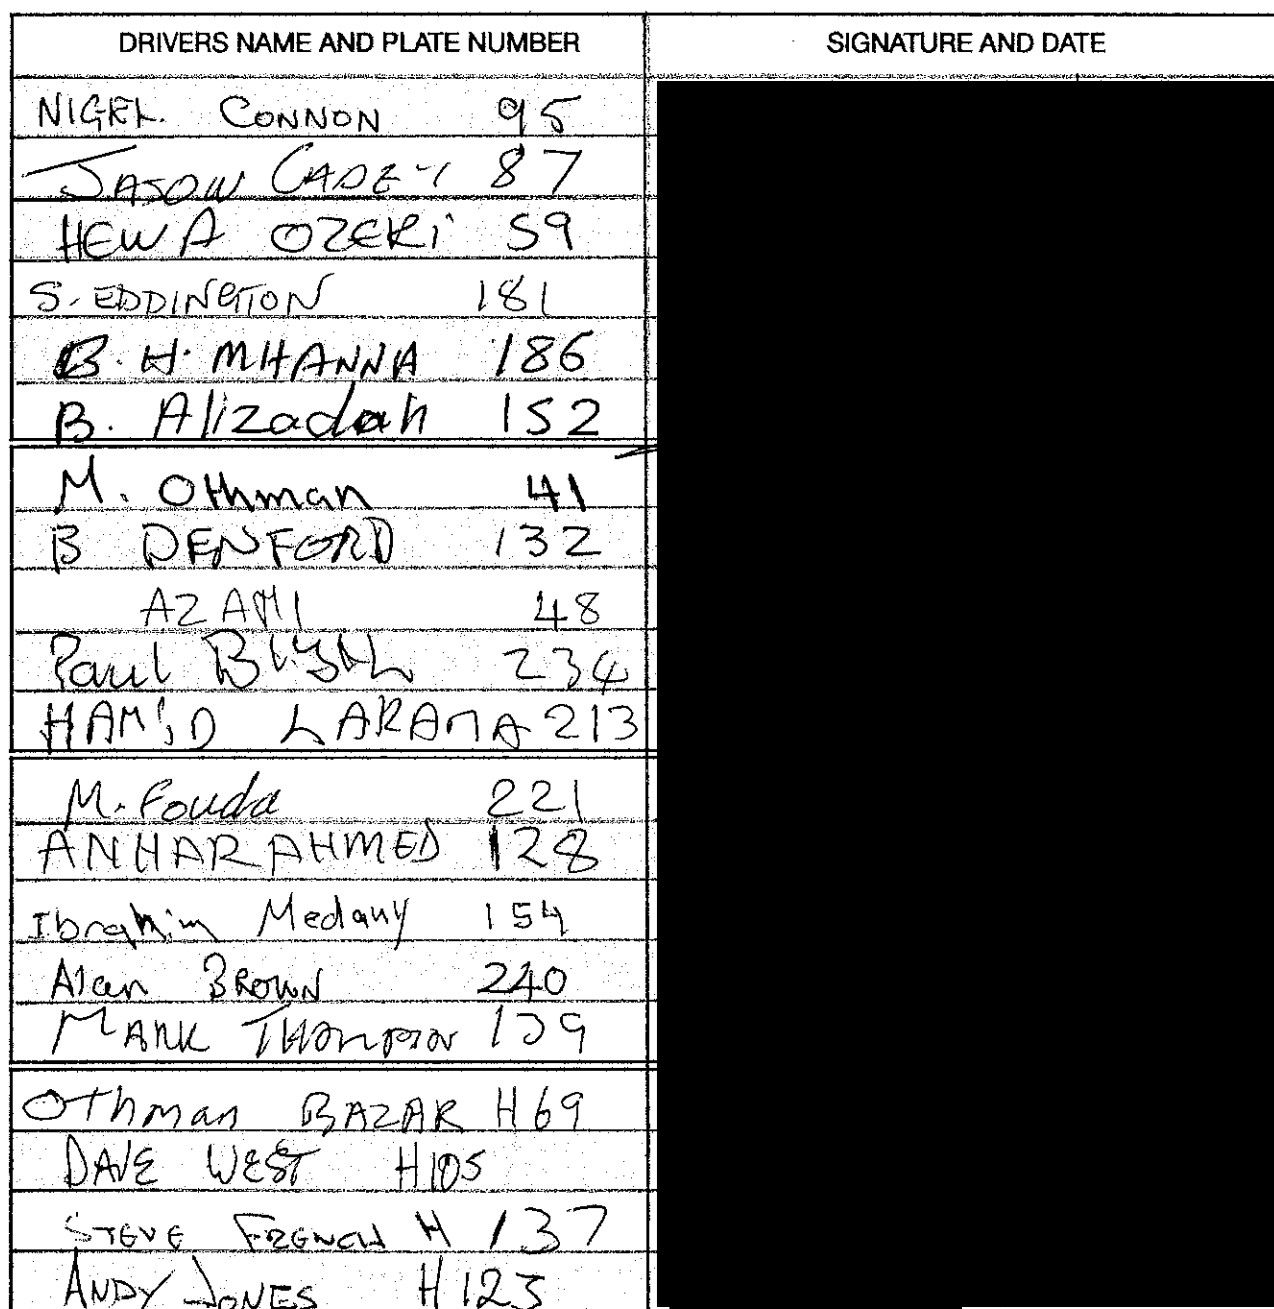 DRIVERS NAME AND PLATE NUMBER SIGNATURE AND DATE
NIGEL. CONNON 95
JASON CADE-1 87
HEWA OZERi 59
S. EDDINGTON 181
B. H. MHANNA 186
B. Alizadah 152
M. Othman 41
B DENFORD 132
AZAMI 48
Paul 234
HAMiD LARAMA 213
M. Fouda 221
ANHAR AHMED 128
Ibrahim Medany 154
Alan BROWN 240
MARK THOMPSON 139
Othman BAZAR H69
DAVE WEST H105
STEVE FRENCH H 137
ANDY JONES H123